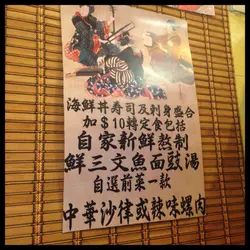 海鮮丼寿司及剌身盛合
加$10轉定食包括
自家新鮮熬制
鮮三文魚面豉湯
自選前菜一款
中華沙律或辣味螺肉